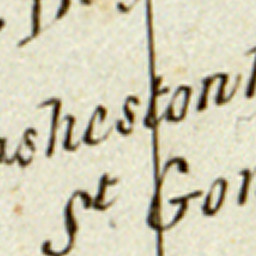 asheston
St Gor